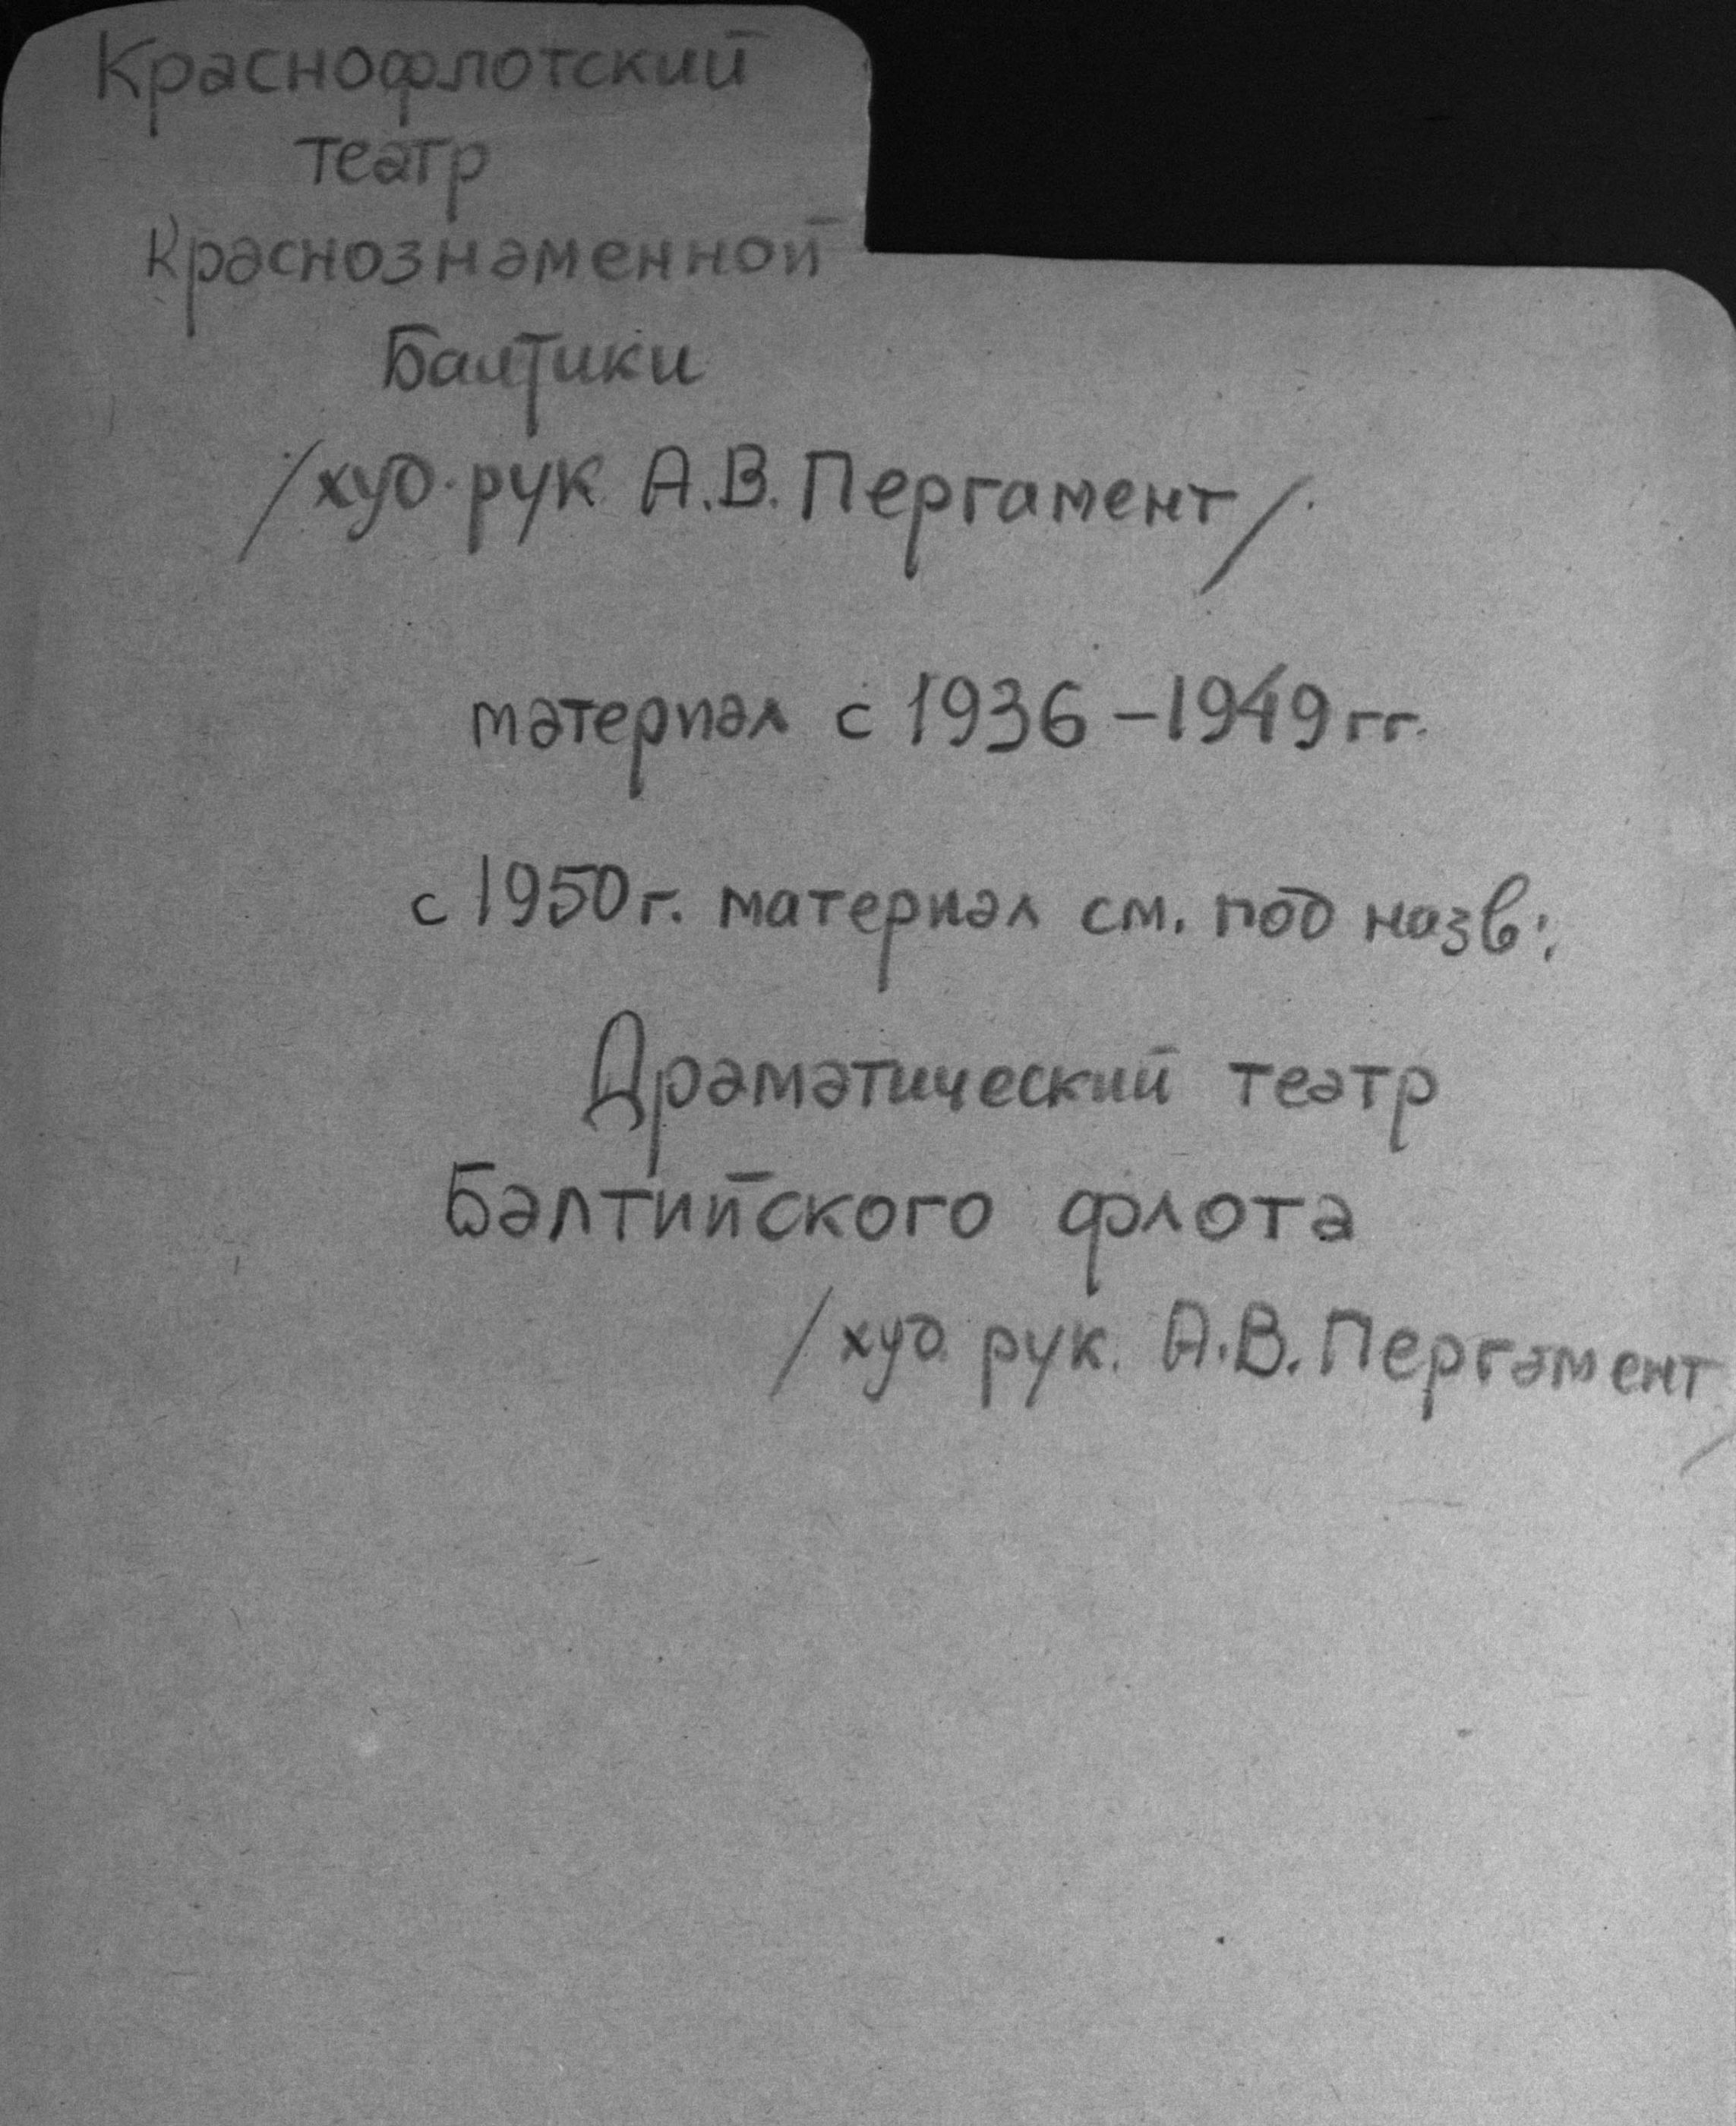 Краснофлотский
театр
Краснознаменной
Балтики
/худ. рук А.В. Пергамент/
материал с 1936-1949 гг.
с 1950 г. материал см. под назв:
Драматический театр
Балтийского флота
/худ. рук. А.В. Пергамент/